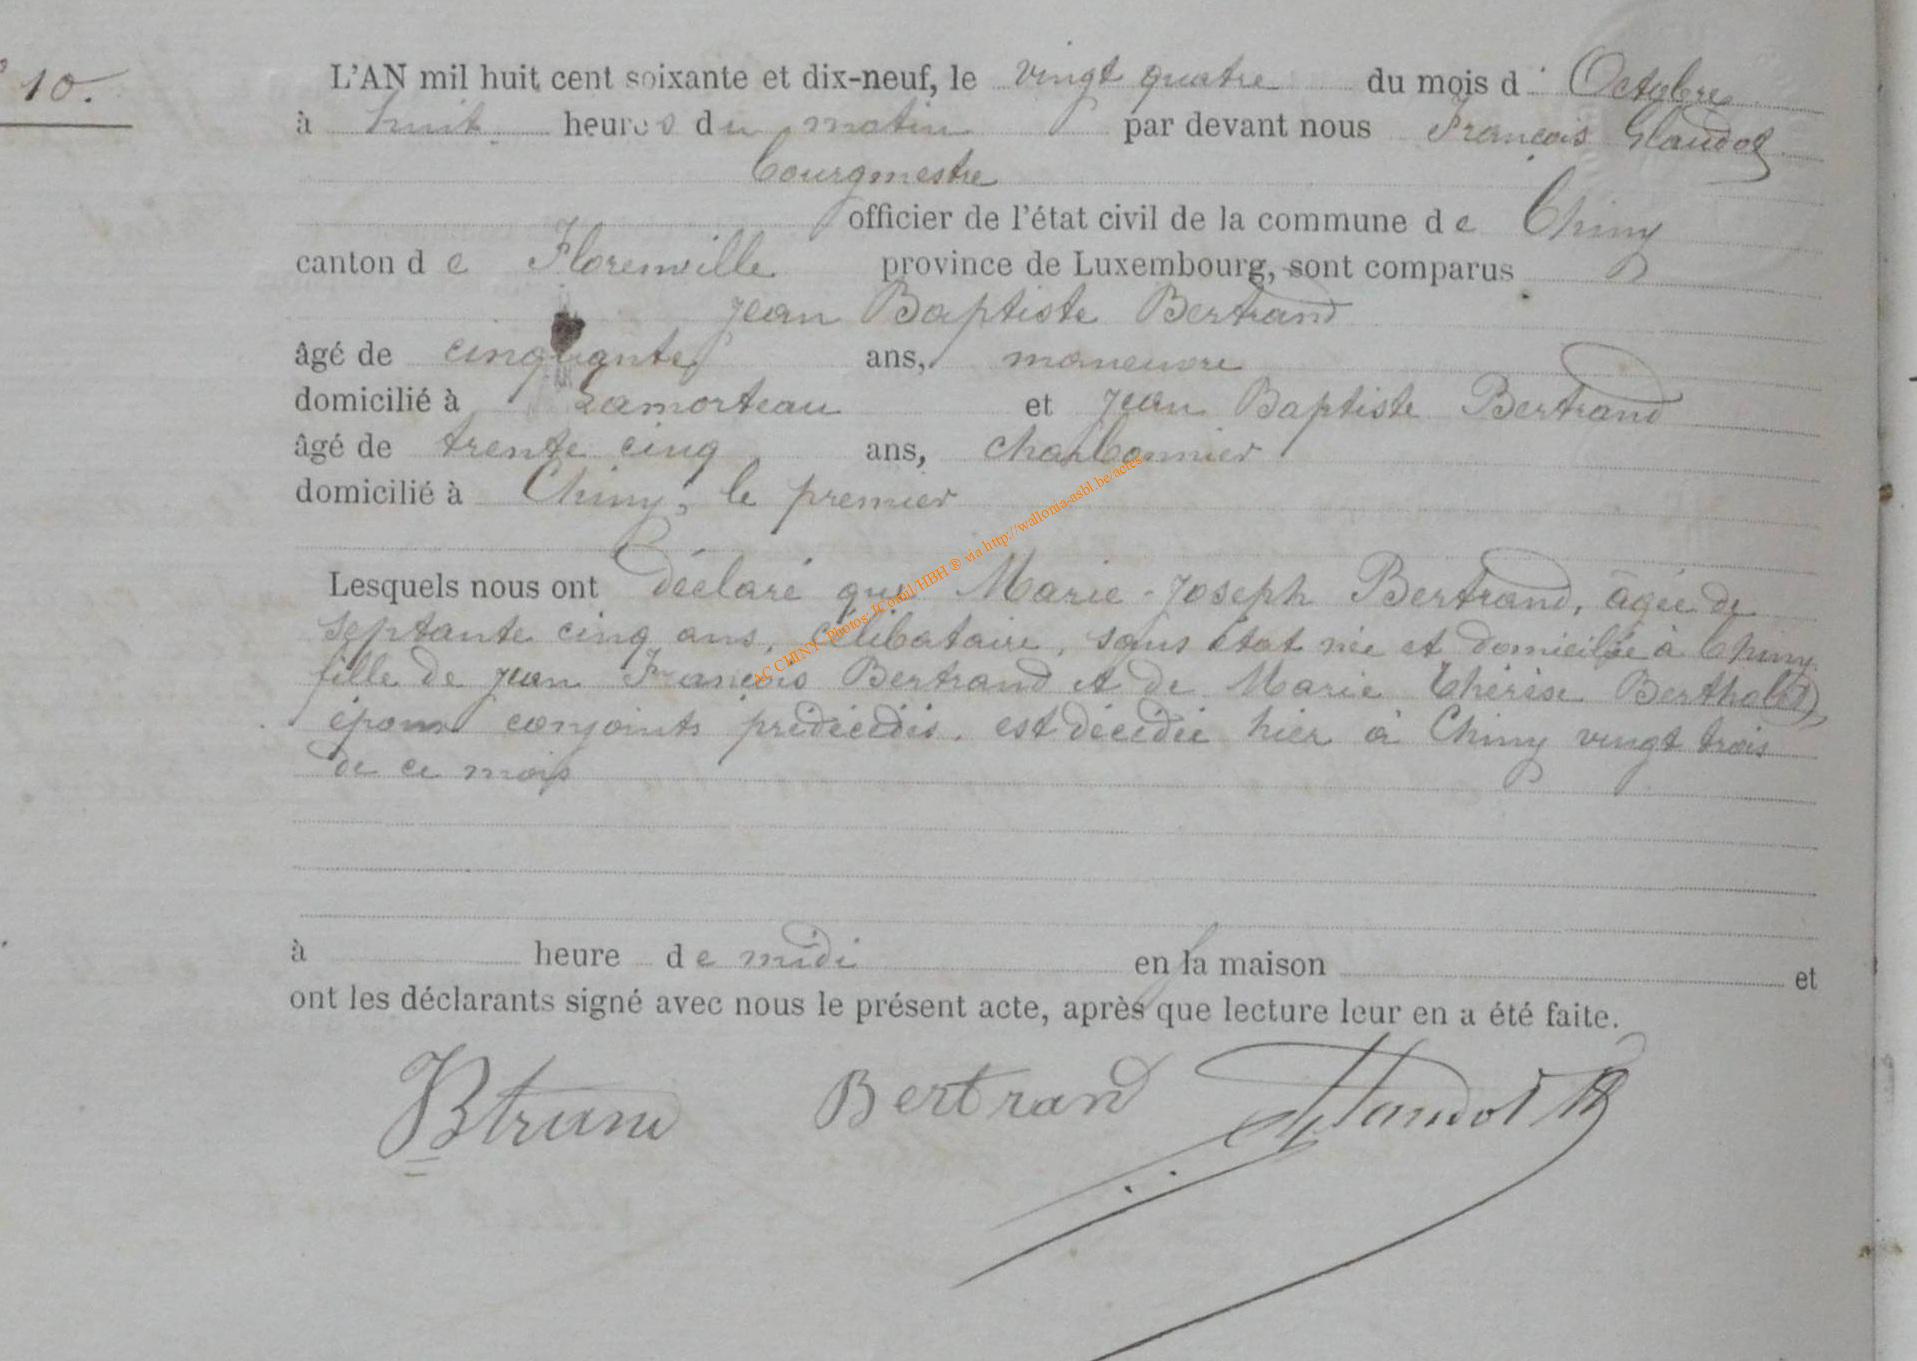 10.
L'AN mil huit cent soixante et dix-neuf, le vingt quatre du mois d' Octobre
à huit heures du matin par devant nous François Glaudot
bourgmestre
officier de l'état civil de la commune de Chiny
canton de Florenville province de Luxembourg, sont comparus
Jean Baptiste Bertrand
âgé de cinquante ans, maneuvre
domicilié à Lamorteau et Jean Baptiste Bertrand
âgé de trente cinq ans, charbonnier
domicilié à Chiny, le premier
Lesquels nous ont déclaré que Marie-Joseph Bertrand, âgée de
septante cinq ans, célibataire, sans état née et domiciliée à Chiny
fille de Jean François Bertrand et de Marie Thérèse Bertholet,
conjoints prédécédés, est décédée hier à Chiny vingt trois
de ce mois
à heure de midi en la maison et
ont les déclarants signé avec nous le présent acte, après que lecture leur en a été faite.
Bertrand Glaudot
AC CHINY Photos JComil/HBH ® via http://wallonia-asbl.be/actes